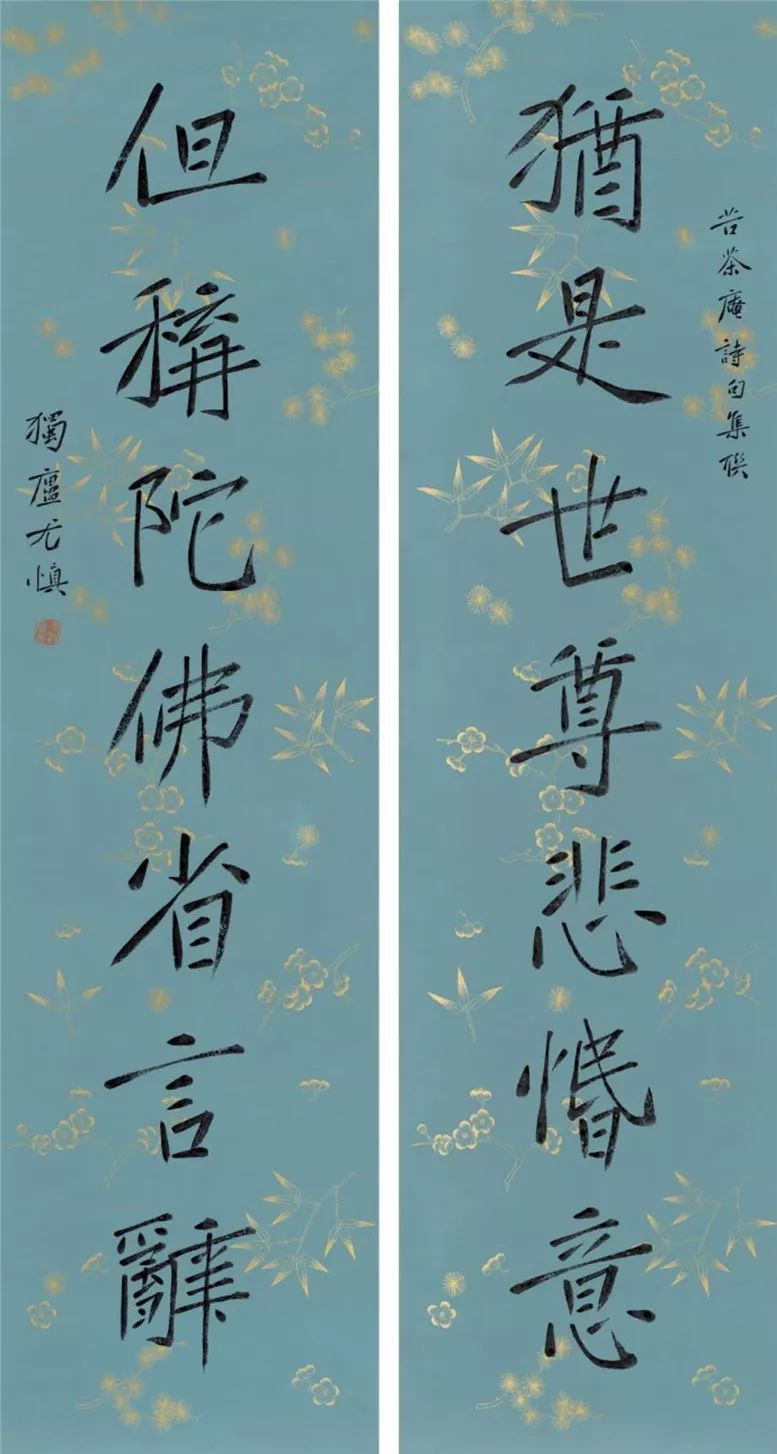 苦茶庵詩句集聯
猶是世尊悲惽意
但稱陀佛省言辭
獨廬尤慎